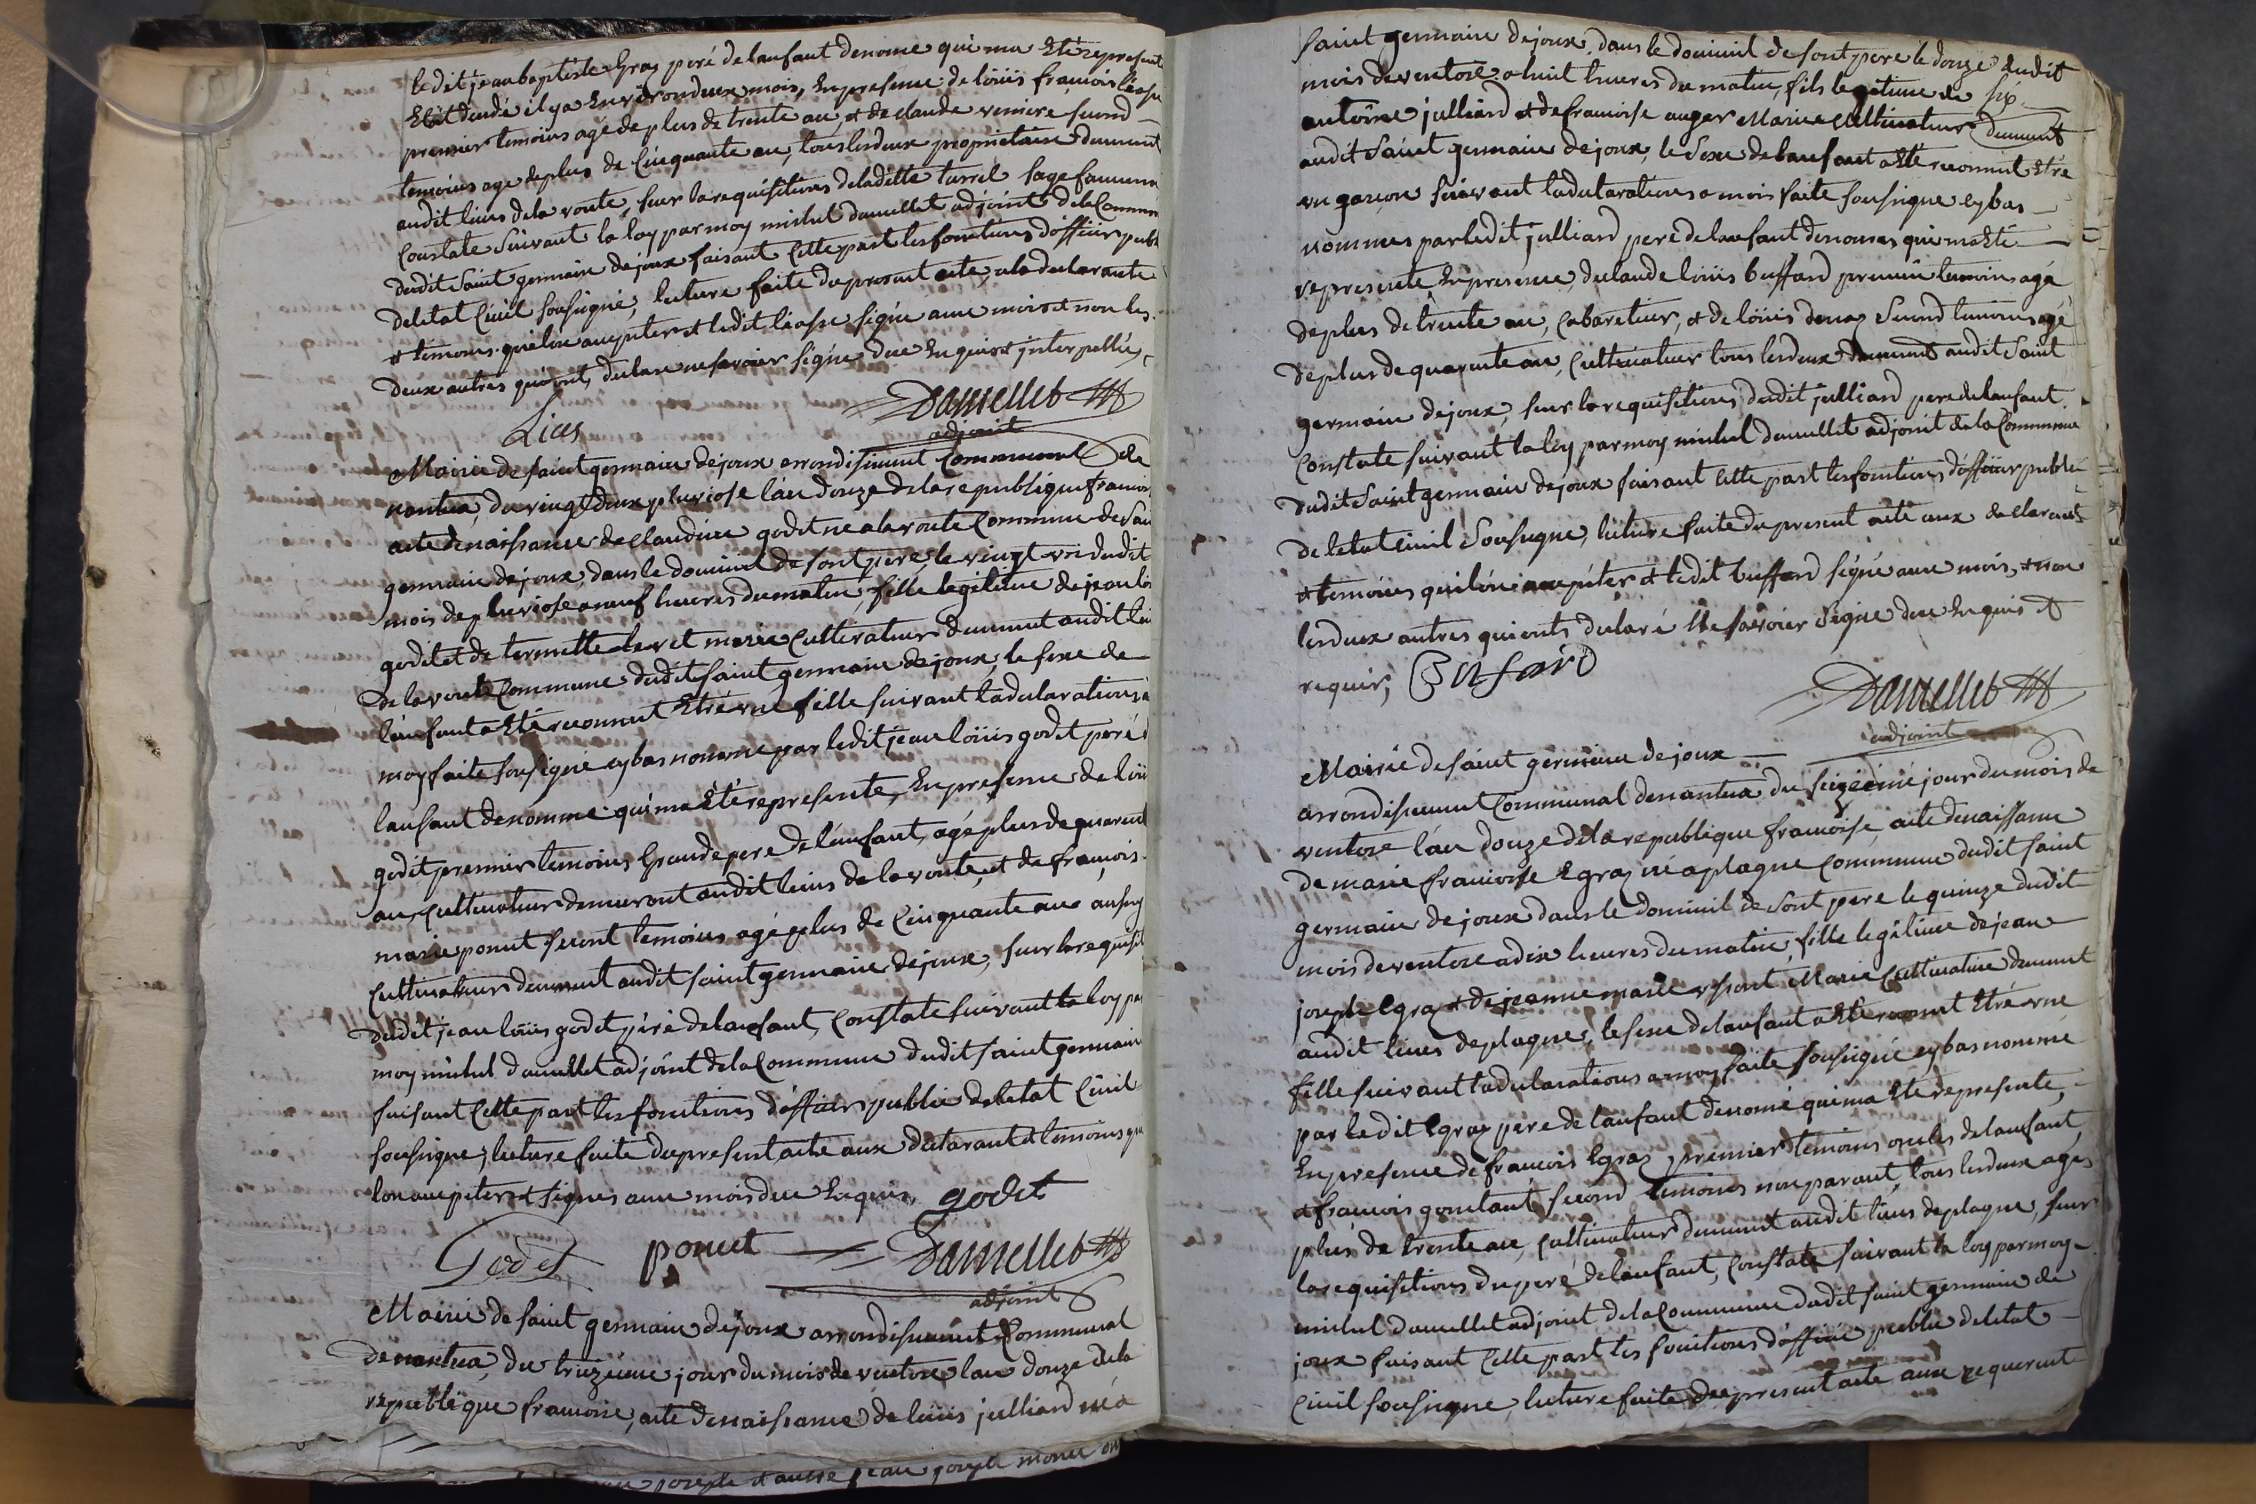 ledit jean baptiste Gras peré de lanfant denome qui ma eté represent
premier temoins agé de plus de trente an, et de claude veniere second
temoins age de plus de Cinquante an, tous les deux propriétaire demeurant
audit lieus de la voute, sur la requisitions de laditte sage famme
Constate suivant la loy par moy michel damellet adjoint de la Commun
dudit Saint germain dejoux faisant Cette part les fonctions dofficier publi
deletat Civil sousigné, lecture faite du present acte, a la declarante
et temoins quelon anjuter et ledit signé avec mois et non les
deux autres qui ont, declare ne savoier signé due enquis et interpellés,
Damellet
adjoint
Mairie de saint germain dejoux arrondisement Communal de
nantua, du vingt deux pluviose l'an douze de la republique francois
acte de naissance de claudine godet ne a la voute Commune de Sai
germain dejoux, dans le domicil de sont pere, le vingt un dudit
mois de pluviose a neuf heures du matin, fille legitime de jean lou
godet et de marie Cultivateur demeurant audit lieu
de la voute Commune dudit saint germain dejoux, le sexe de
l'anfant a eté reconnut etré une fille suivant la declarations a
moy faite sousigne cy bas nomme par ledit jean loüis godet peré d
lanfant denomme qui ma eté represente, En presence de loüi
godet premier temoins Grand pere de l'anfant, agé plus de quarent
an, Cultivateur demeurant audit lieus de la voute, et de francois
marie poncet second temoins agé plus de Cinquante an aussy
Cultivateur demeurant audit saint germain dejoux, sur la requisit
dudit jean loüis godet peré de lanfant, Constate suivant la loy par
moy michel damellet adjoint de la Commune dudit saint germain
faisant Cette part les fonctions d'officier public deletat Civil
sousigne, lecture faite du present acte aux declarant et temoins que
lon anjuter et signes avec mois due enquis, godet
Godet poncet Damellet
adjoint
Mairie de saint germain dejoux arrondisement Communal
de nantua, du treizieme jour du mois de ventose lan douze de la
republique francoise, acte de naissance de loüis julliard né a
saint germain dejoux, dans le domicil de sont pere le douze dudit
mois de ventose a huit heures du matin, fils legitime de
antoine julliard et de francoise auger Marie Cultivateur demeurant
audit Saint germain dejoux, le sexe de lanfant a eté reconnut etre
un garcon suivant la declarations a mois faite sousigne cy bas
nommes par ledit julliard pere de lanfant denomes qui ma eté
represente, En presence de claude loüis buffard premier temoins agé
de plus de trente an, Cabaretier, et de loüis second temoins agé
de plus de quarente an, Cultivateur tous les deux demeurant audit Saint
germain dejoux, sur la requisitions dudit julliard pere de lanfant
Constate suivant la loy par moy michel damellet adjoint de la Commune
dudit Saint germain dejoux faisant Cette part les fonctions d'officier public
deletat Civil Sousigne, lecture faite du present acte aux declarant
et temoins quelon anjuter et ledit buffard signé avec mois, et non
les deux autres qui onts declaré ne savoier signe due enquis et
requis, Bufard
Damellet
adjoint
Mairie de saint germain dejoux
arrondisement Communal de nantua du seizieme jour du mois de
ventose l'an douze de la republique francoise, acte de naissance
de marie francoise Egraz né a plagne Commune dudit saint
germain dejoux dans le domicil de sont pere le quinze dudit
mois de ventose a dix heures du matin, fille legitime de jean
joseph Egraz et de jeanne marie Marie Cultivateur demeurant
audit lieus de plagne, le sexe de lanfant a eté reconnut etré une
fille suivant la declarations a moy faite sousigné cy bas nommé
par ledit Egraz pere de lanfant denomé qui ma eté represente,
En presence de francois Egraz premier temoins oncles de lanfant,
et francois second temoins non parant, tous les deux ages
plus de trente an, Cultivateur demeurant audit lieus de plagne, sur
la requisitions du peré de lanfant, Constate suivant la loy par moy
michel damellet adjoint de la Commune dudit saint germain de
joux faisant Cette part les fonctions d'officié public deletat
Civil sousigne, lecture faite du present acte aux requerent